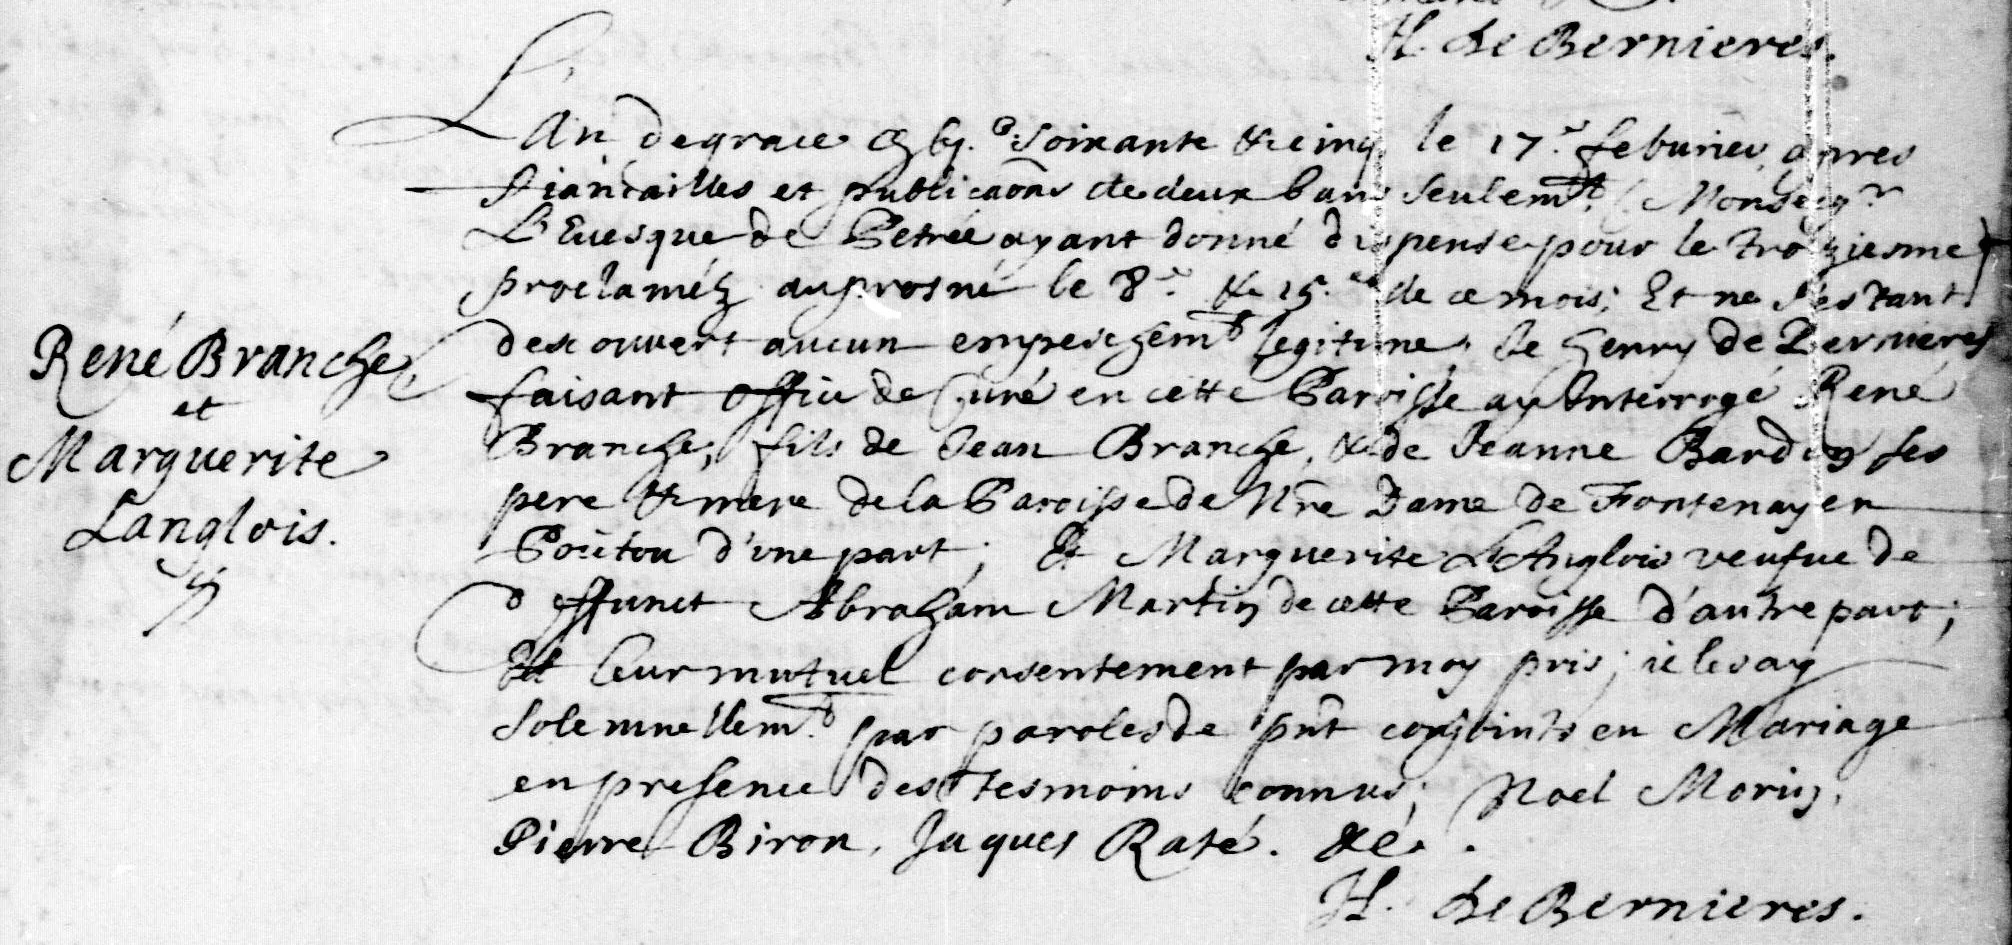 H. de Bernieres.
L'an de grace soixante & cinq le 17.e feburier, apres
fiançailles et publicaōns de deux bans seulem.t (Monseig.r
L'Euesque de Petrée ayant donné dispense pour le troiziesme)
proclaméz au prosne le 8.e & 15.e de ce mois; Et ne s'estant
descouvert aucun empeschem.t legitime, Je Henry de Bernieres
faisant office de Curé en cette Paroisse ay Interrogé René
Branche, fils de Jean Branche, & de Jeanne Bardin ses
pere & mere de la Paroisse de Nr̄e Dame de Fontenay en
Poitou d'une part; Et Marguerite L'Anglois veufue de
deffunct Abraham Martin de cette Paroisse d'autre part;
Et leur mutuel consentement par moy pris; ie les ay
solemnellem.t par paroles de pn̄t conjoints en Mariage
en presence des tesmoins connus; Noel Morin,
Pierre Biron, Jaques Raté. &c.
H. de Bernieres.
René Branche
et
Marguerite
Langlois.